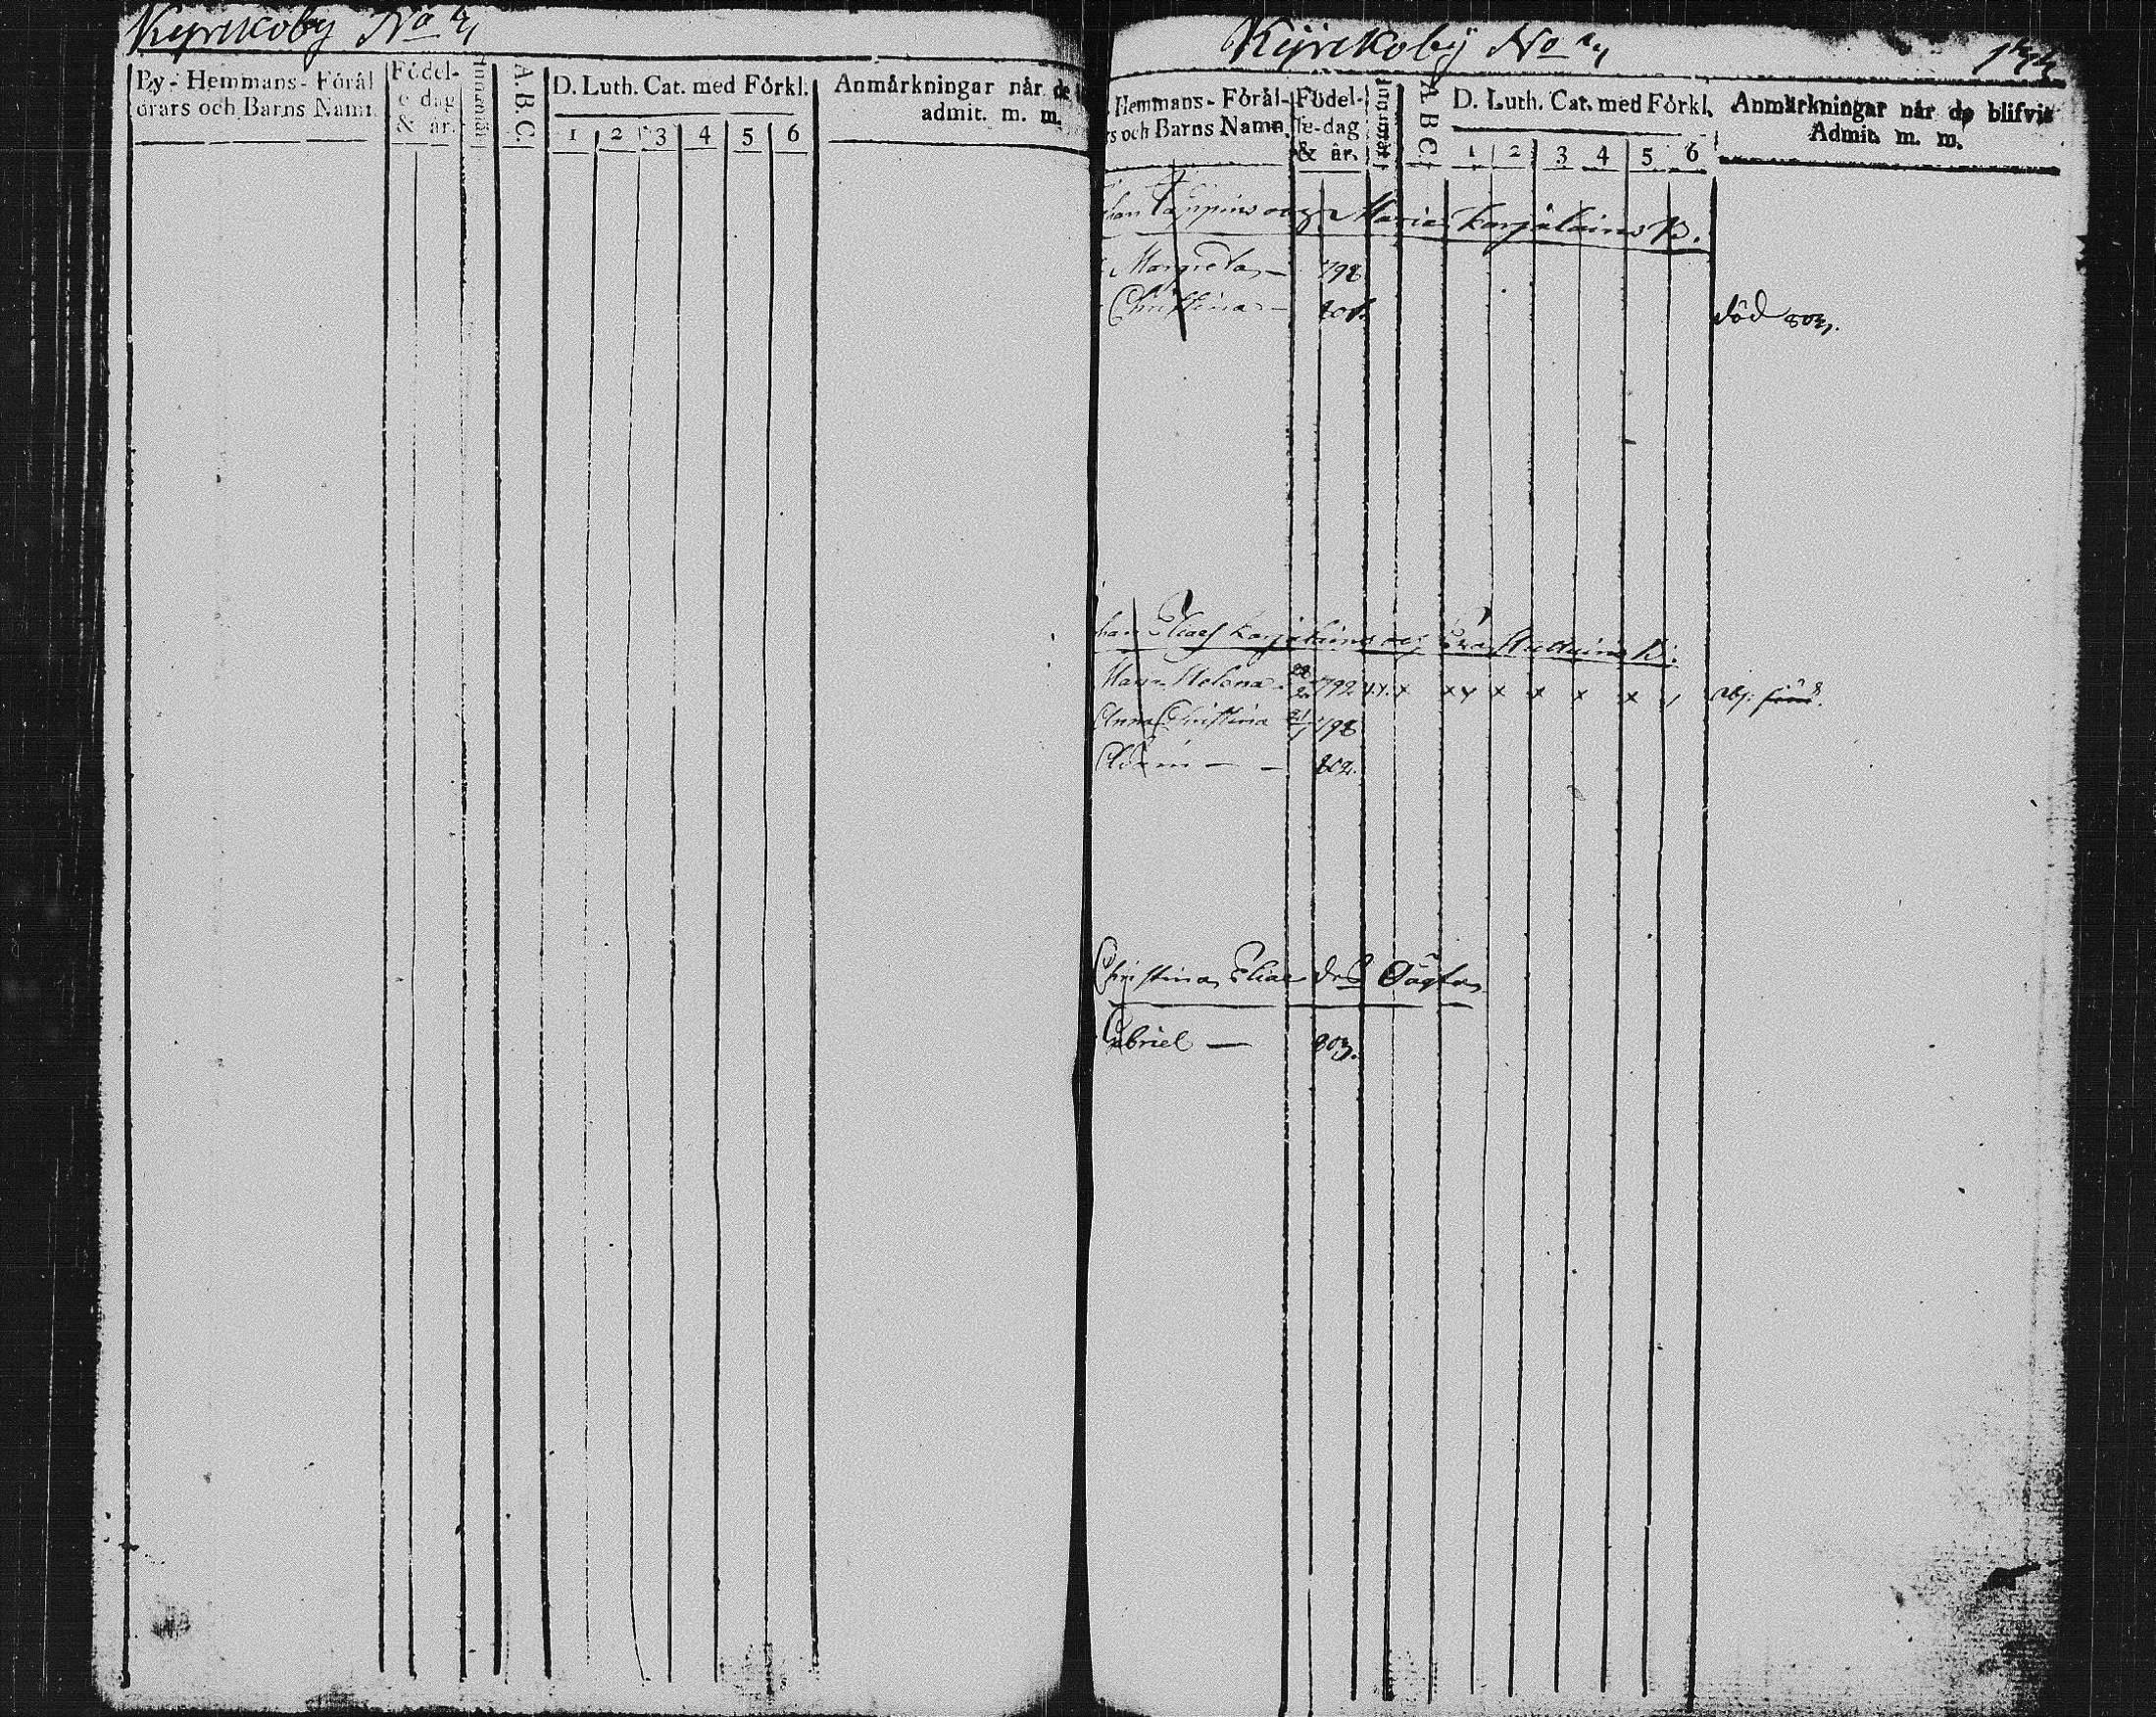 Kyrckoby No 2,
By-Hemmans-Föräl
drars och Barns Namn.
Födel-
e dag
& år.
A.B.C.
D. Luth. Cat. med Förkl.
1 2 3 4 5 6
Anmärkningar når de
admit. m. m.
Kyrckoby No 2,
Hemmans-Föräl-
rs och Barns Namn.
Födel-
se-dag
& år.
A.B.C.
D. Luth. Cat. med Förkl.
1 2 3 4 5 6
Anmärkningar når de blifvit
Admit. m. m.
Maria Karjalains B.
Margreta — 798
Christina — 801. död 803.
Elias Karjalains och Eva B:
Helena 792 x x x x x x x x
Anna Christina 798
Adam — — 802.
Christina Elias dr
Gabriel — 803.